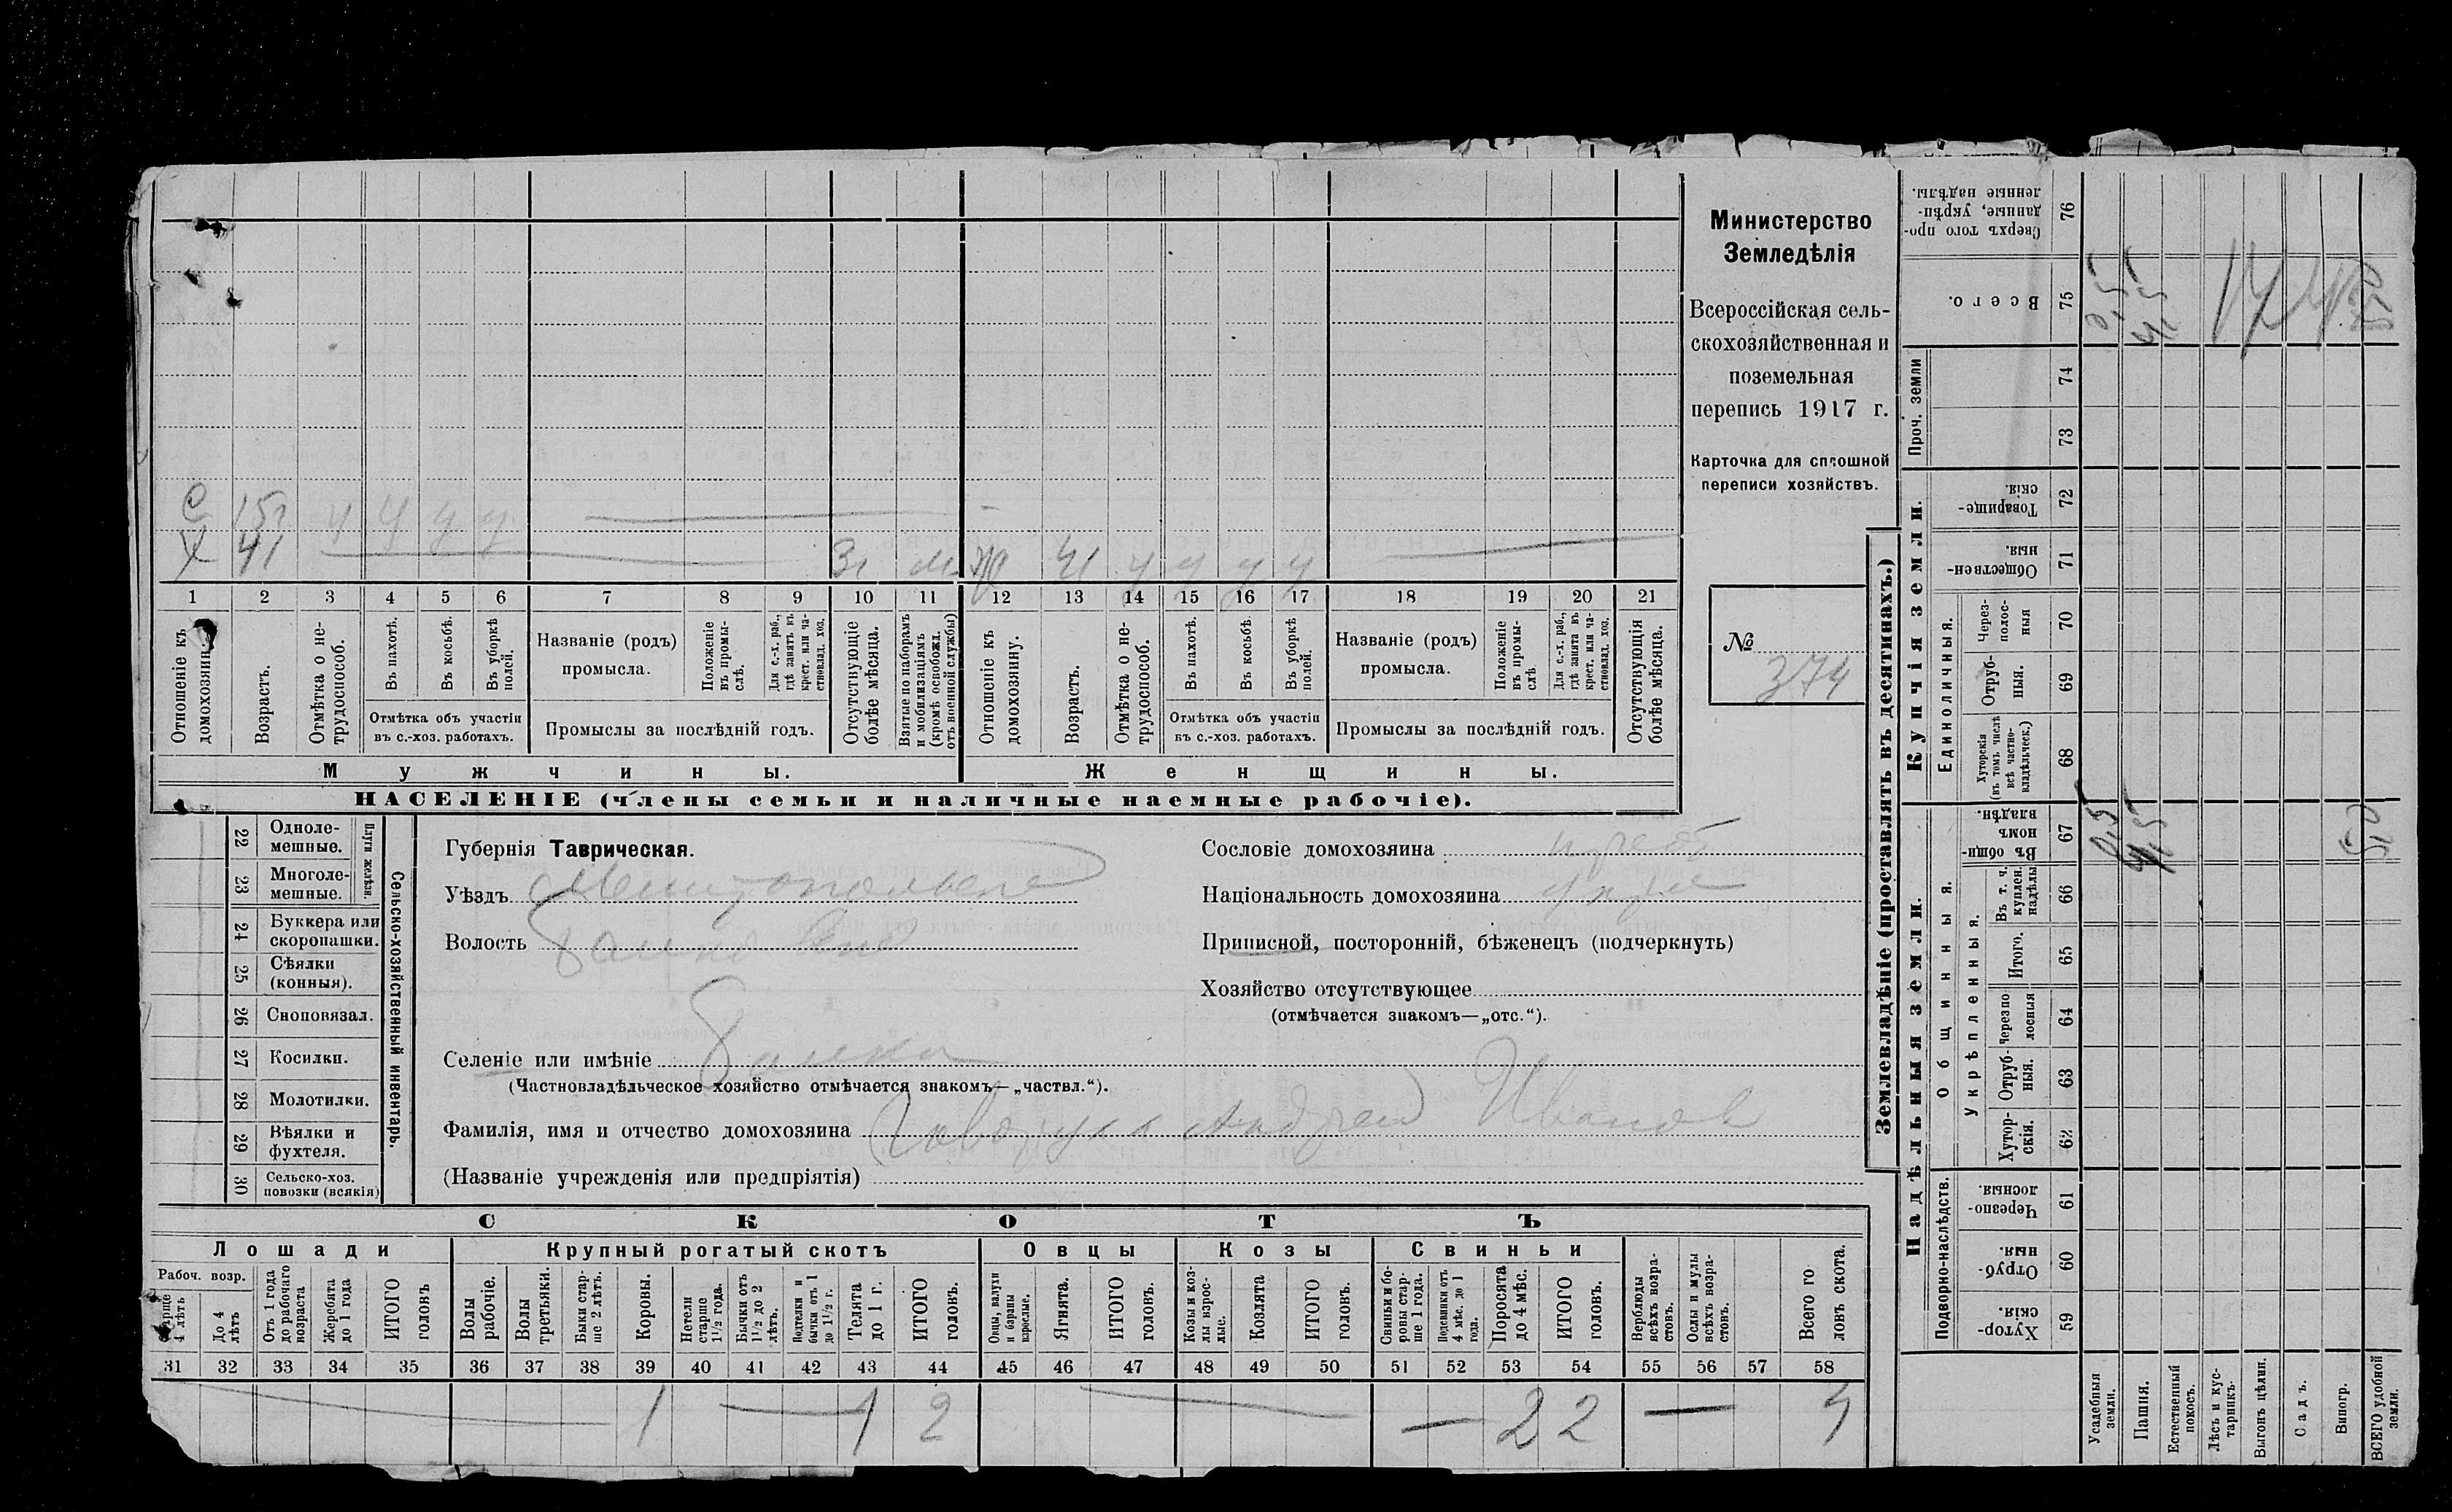 Министерство
Земледѣлія
Всероссійская сель-
скохозяйственная и
поземельная
перепись 1917 г.
Карточка для сплошной
переписи хозяйствъ.
№ 374
С 15 у у у у
Х 41 31 м ж 41 у у у у
1 2 3 4 5 6 7 8 9 10 11 12 13 14 15 16 17 18 19 20 21
Отношеніе къ домохозяину.
Возрастъ.
Отмѣтка о не-трудоспособ.
Въ пахотѣ.
Въ косьбѣ.
Въ уборкѣ полей.
Отмѣтка объ участіи въ с.-хоз. работахъ.
Названіе (родъ) промысла.
Положеніе въ промы-слѣ.
Для с.-х. раб., гдѣ занятъ въ крест. или ча-стновлад. хоз.
Промыслы за послѣдній годъ.
Отсутствующіе болѣе мѣсяца.
Взятые по наборамъ и мобилизаціямъ (кромѣ освобожд. отъ военной службы)
Отношеніе къ домохозяину.
Возрастъ.
Отмѣтка о не-трудоспособ.
Въ пахотѣ.
Въ косьбѣ.
Въ уборкѣ полей.
Отмѣтка объ участіи въ с.-хоз. работахъ.
Названіе (родъ) промысла.
Положеніе въ промы-слѣ
Для с.-х. раб., гдѣ занята въ крест. или ча-стновлад. хоз.
Промыслы за послѣдній годъ.
Отсутствующія болѣе мѣсяца.
Мужчины. Женщины.
НАСЕЛЕНІЕ (члены семьи и наличные наемные рабочіе).
22 Одноле-мешные.
23 Многоле-мешные.
Плуги желѣзн.
24 Буккера или скоропашки.
25 Сѣялки (конныя).
26 Сноповязал.
27 Косилки.
28 Молотилки.
29 Вѣялки и фухтеля.
30 Сельско-хоз. повозки (всякія)
Сельско-хозяйственный инвентарь.
Губернія Таврическая.
Уѣздъ Мелитопольск
Волость
Селеніе или имѣніе Балки
(Частновладѣльческое хозяйство отмѣчается знакомъ—„частвл.“).
Фамилія, имя и отчество домохозяина Андрей Иванов
(Названіе учрежденія или предпріятія)
Сословіе домохозяина
Національность домохозяина
Приписной, посторонній, бѣженецъ (подчеркнуть)
Хозяйство отсутствующее
(отмѣчается знакомъ—„отс.“).
СКОТЪ
Лошади Крупный рогатый скотъ Овцы Козы Свиньи
Рабоч. возр.
Старше 4 лѣтъ
До 4 лѣтъ
Отъ 1 года до рабочаго возраста
Жеребята до 1 года
ИТОГО головъ
Волы рабочіе.
Волы третьяки.
Быки стар-ше 2 лѣтъ.
Коровы.
Нетели старше 1½ года.
Бычки отъ 1½ до 2 лѣтъ.
Подтелки и бычки отъ 1 до 1½ г.
Телята до 1 г.
ИТОГО головъ.
Овцы, валухи и бараны взрослые.
Ягнята.
ИТОГО головъ.
Козы и коз-лы взрос-лые.
Козлята
ИТОГО головъ.
Свиньи и бо-ровы стар-ше 1 года.
Подсвинки отъ 4 мѣс. до 1 года.
Поросята до 4 мѣс.
ИТОГО головъ.
Верблюды всѣхъ возра-стовъ.
Ослы и мулы всѣхъ возра-стовъ.
Всего го ловъ скота.
31 32 33 34 35 36 37 38 39 40 41 42 43 44 45 46 47 48 49 50 51 52 53 54 55 56 57 58
1 1 2 2 2 4
Землевладѣніе (проставлять въ десятинахъ.)
Надѣльныя земли. Купчія земли. Проч. земли
Подворно-наслѣдств. Общинныя. Укрѣпленныя. Единоличныя.
59 Хутор-скія.
60 Отруб-ныя.
61 Черезпо-лосныя.
62 Хутор-скія.
63 Отруб-ныя.
64 Черезпо лосныя
65 Итого.
66 Въ т. ч. куплен. надѣлы
67 Въ общи-номъ владѣн.
68 Хуторскія (въ томъ числѣ всѣ частно-владѣльческ.)
69 Отруб-ныя.
70 Через-полос-ныя
71 Обществен-ныя.
72 Товарище-скія.
73
74
75 Всего.
76 Сверхъ того про-данные, укрѣп-ленные надѣлы.
Усадебныя земли. 0,5 0,5
Пашня. 4,5 4,5
Естественный покосъ.
Лѣсъ и кус-тарникъ.
Выгонъ цѣлин.
Садъ.
Виногр.
ВСЕГО удобной земли. 5,0 5,0